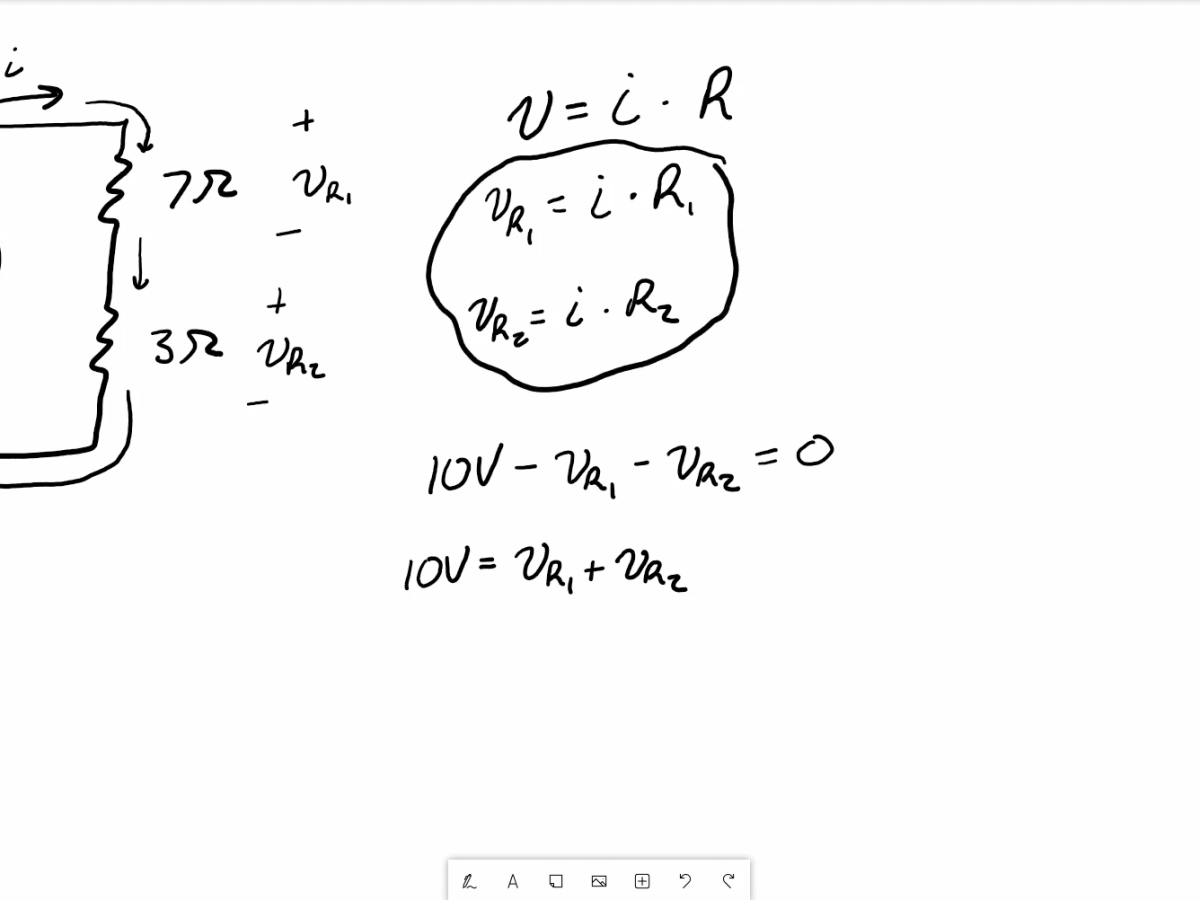 i
+
7Ω v_R₁
−
+
3Ω v_R₂
−
v = i · R
v_R₁ = i · R₁
v_R₂ = i · R₂
10V − v_R₁ − v_R₂ = 0
10V = v_R₁ + v_R₂
A